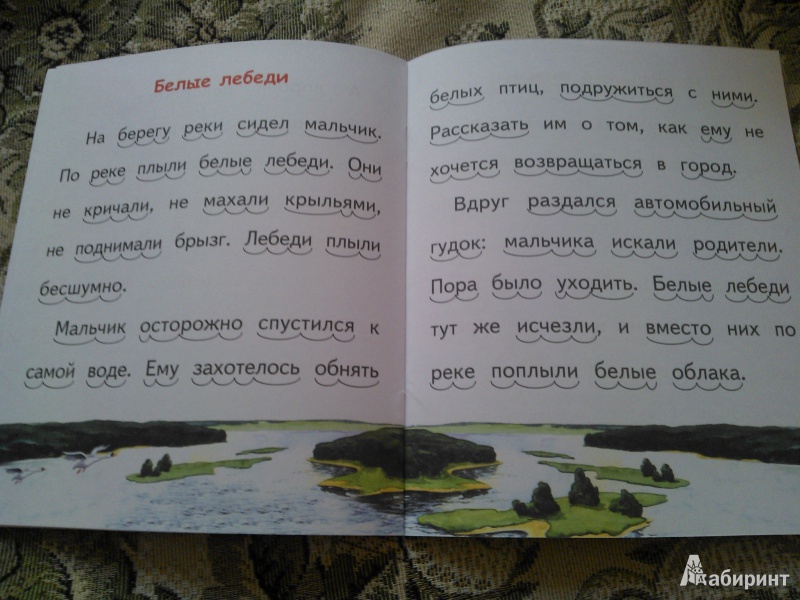 Белые лебеди
На берегу реки сидел мальчик.
По реке плыли белые лебеди. Они
не кричали, не махали крыльями,
не поднимали брызг. Лебеди плыли
бесшумно.
Мальчик осторожно спустился к
самой воде. Ему захотелось обнять
белых птиц, подружиться с ними.
Рассказать им о том, как ему не
хочется возвращаться в город.
Вдруг раздался автомобильный
гудок: мальчика искали родители.
Пора было уходить. Белые лебеди
тут же исчезли, и вместо них по
реке поплыли белые облака.
Лабиринт